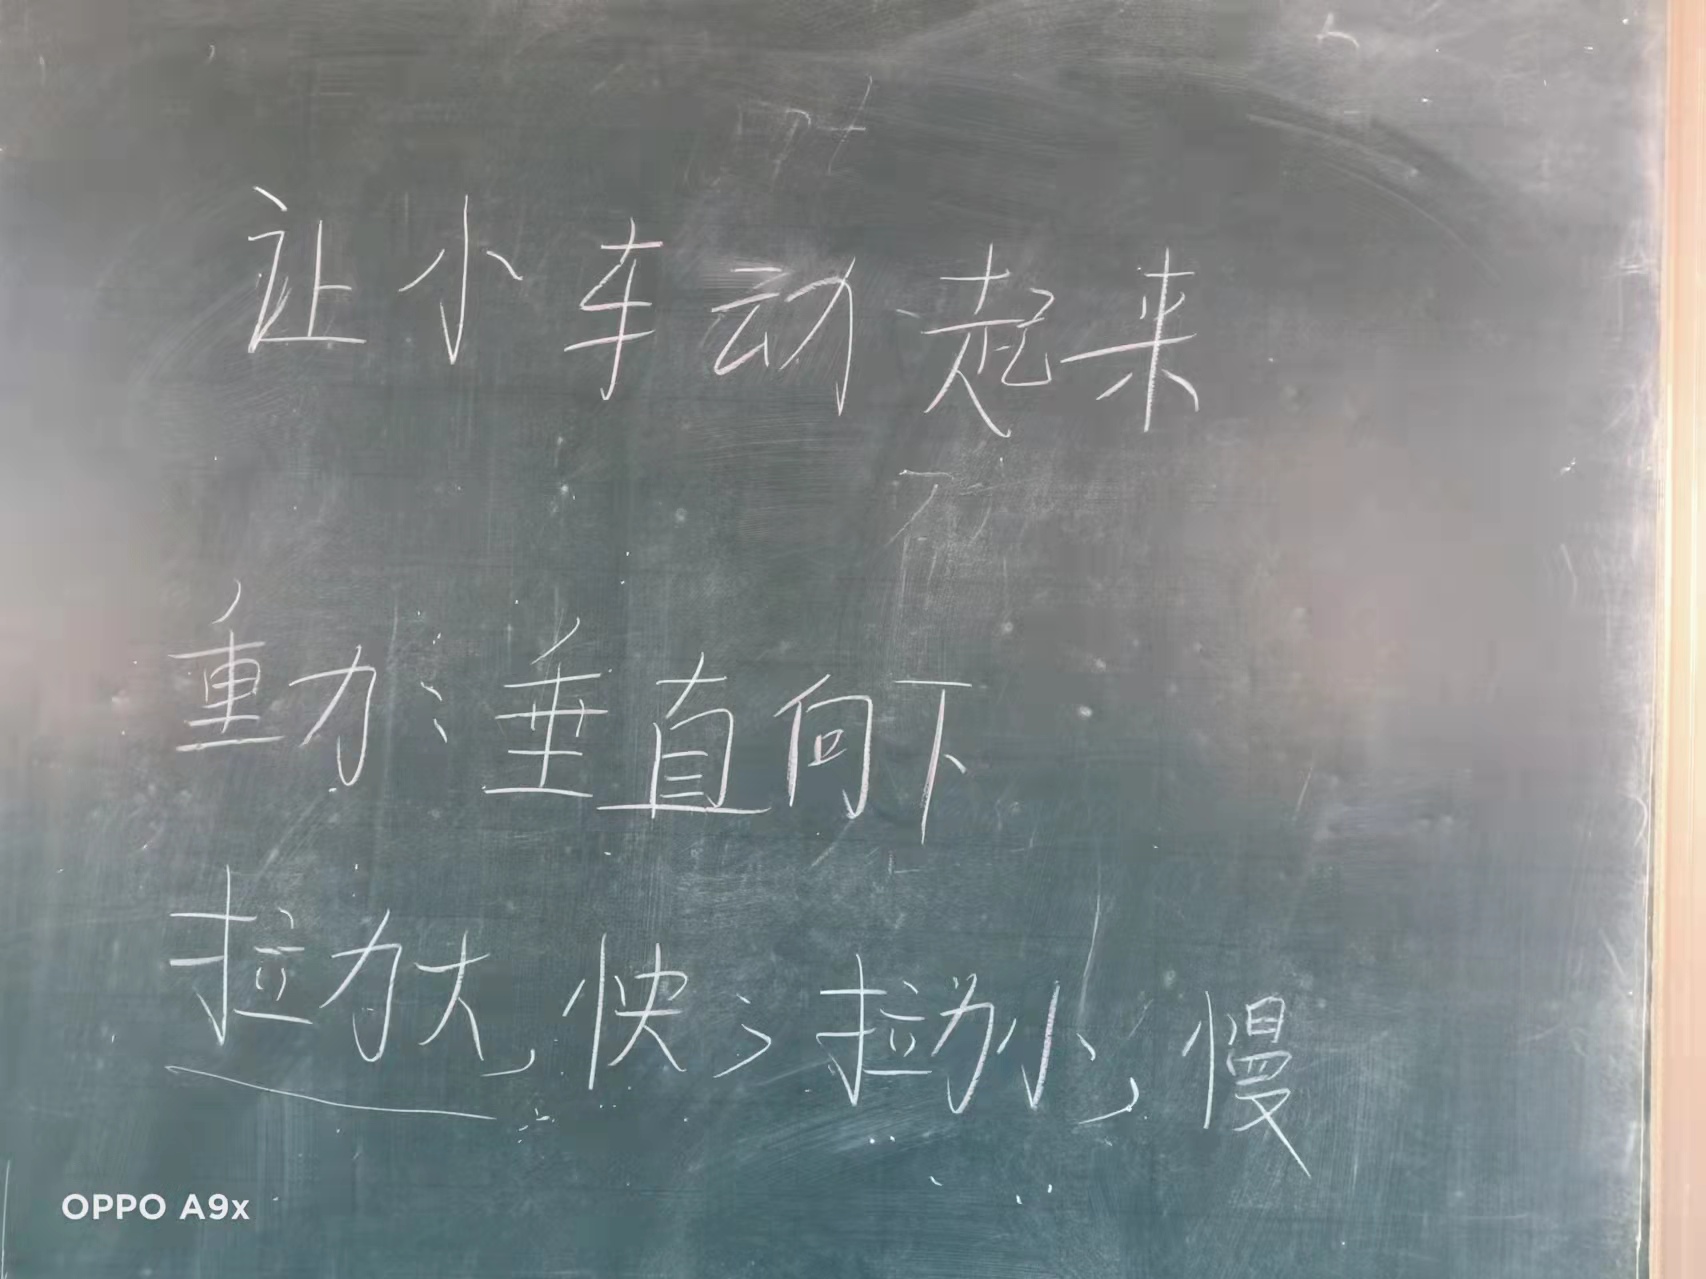 让小车动起来
重力：垂直向下
拉力大，快；拉力小，慢
OPPO A9x